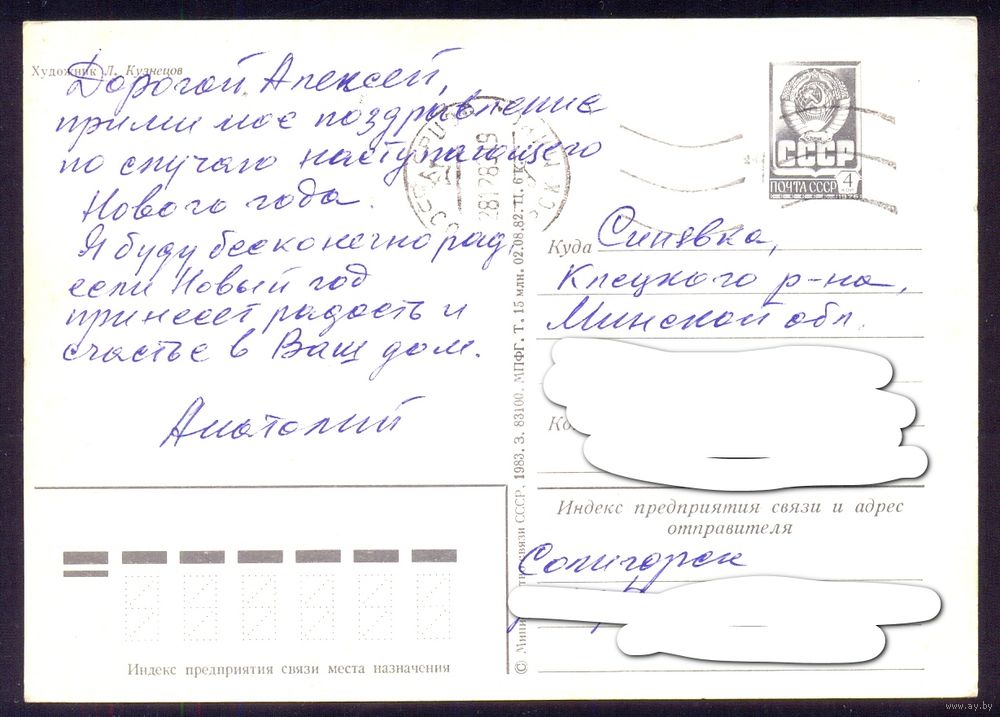 Художник Л. Кузнецов
Дорогой Алексей,
прими мое поздравление
по случаю наступающего
Нового года.
Я буду бесконечно рад,
если Новый год
принесет радость и
счастье в Ваш дом.
Анатолий
СССР
ПОЧТА СССР 4 КОП
Куда Синявка,
Клецкого р-на,
Минской обл.
Индекс предприятия связи и адрес
отправителя
Солигорск
связи СССР. 1983. З. 83100. МПФГ. Т. 15 млн. 02.08.82. Ц. 6 к.
Индекс предприятия связи места назначения
www.ay.by